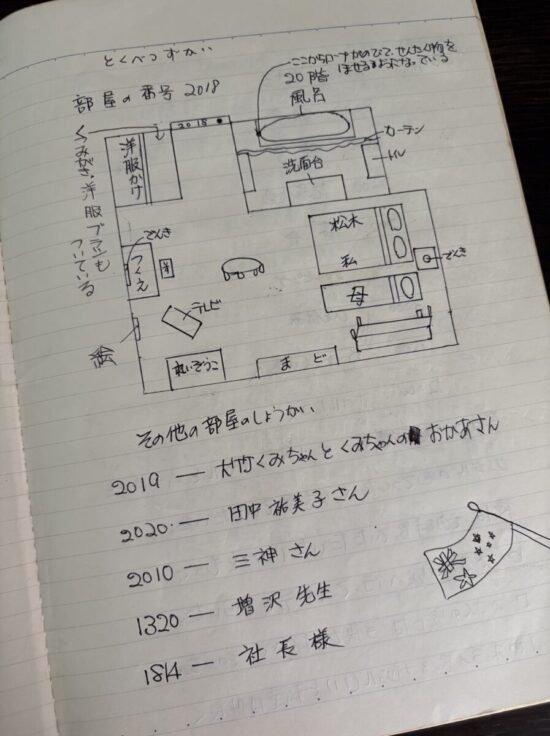 とくべつずかい
部屋の番号 2018
ここからロープがのびて、せんたく物を
ほせるようになっている
20階
風呂
カーテン
トイレ
洗面台
2018
洋服かけ
くつみがき、洋服ブラシも
ついている
でんき
つくえ
松木
私
母
でんき
テレビ
絵
れいぞうこ
まど
その他の部屋のしょうかい
2019 ― 大竹くみちゃんとくみちゃんのおかあさん
2020 ― 田中祐美子さん
2010 ― 三神さん
1320 ― 増沢先生
1814 ― 社長様